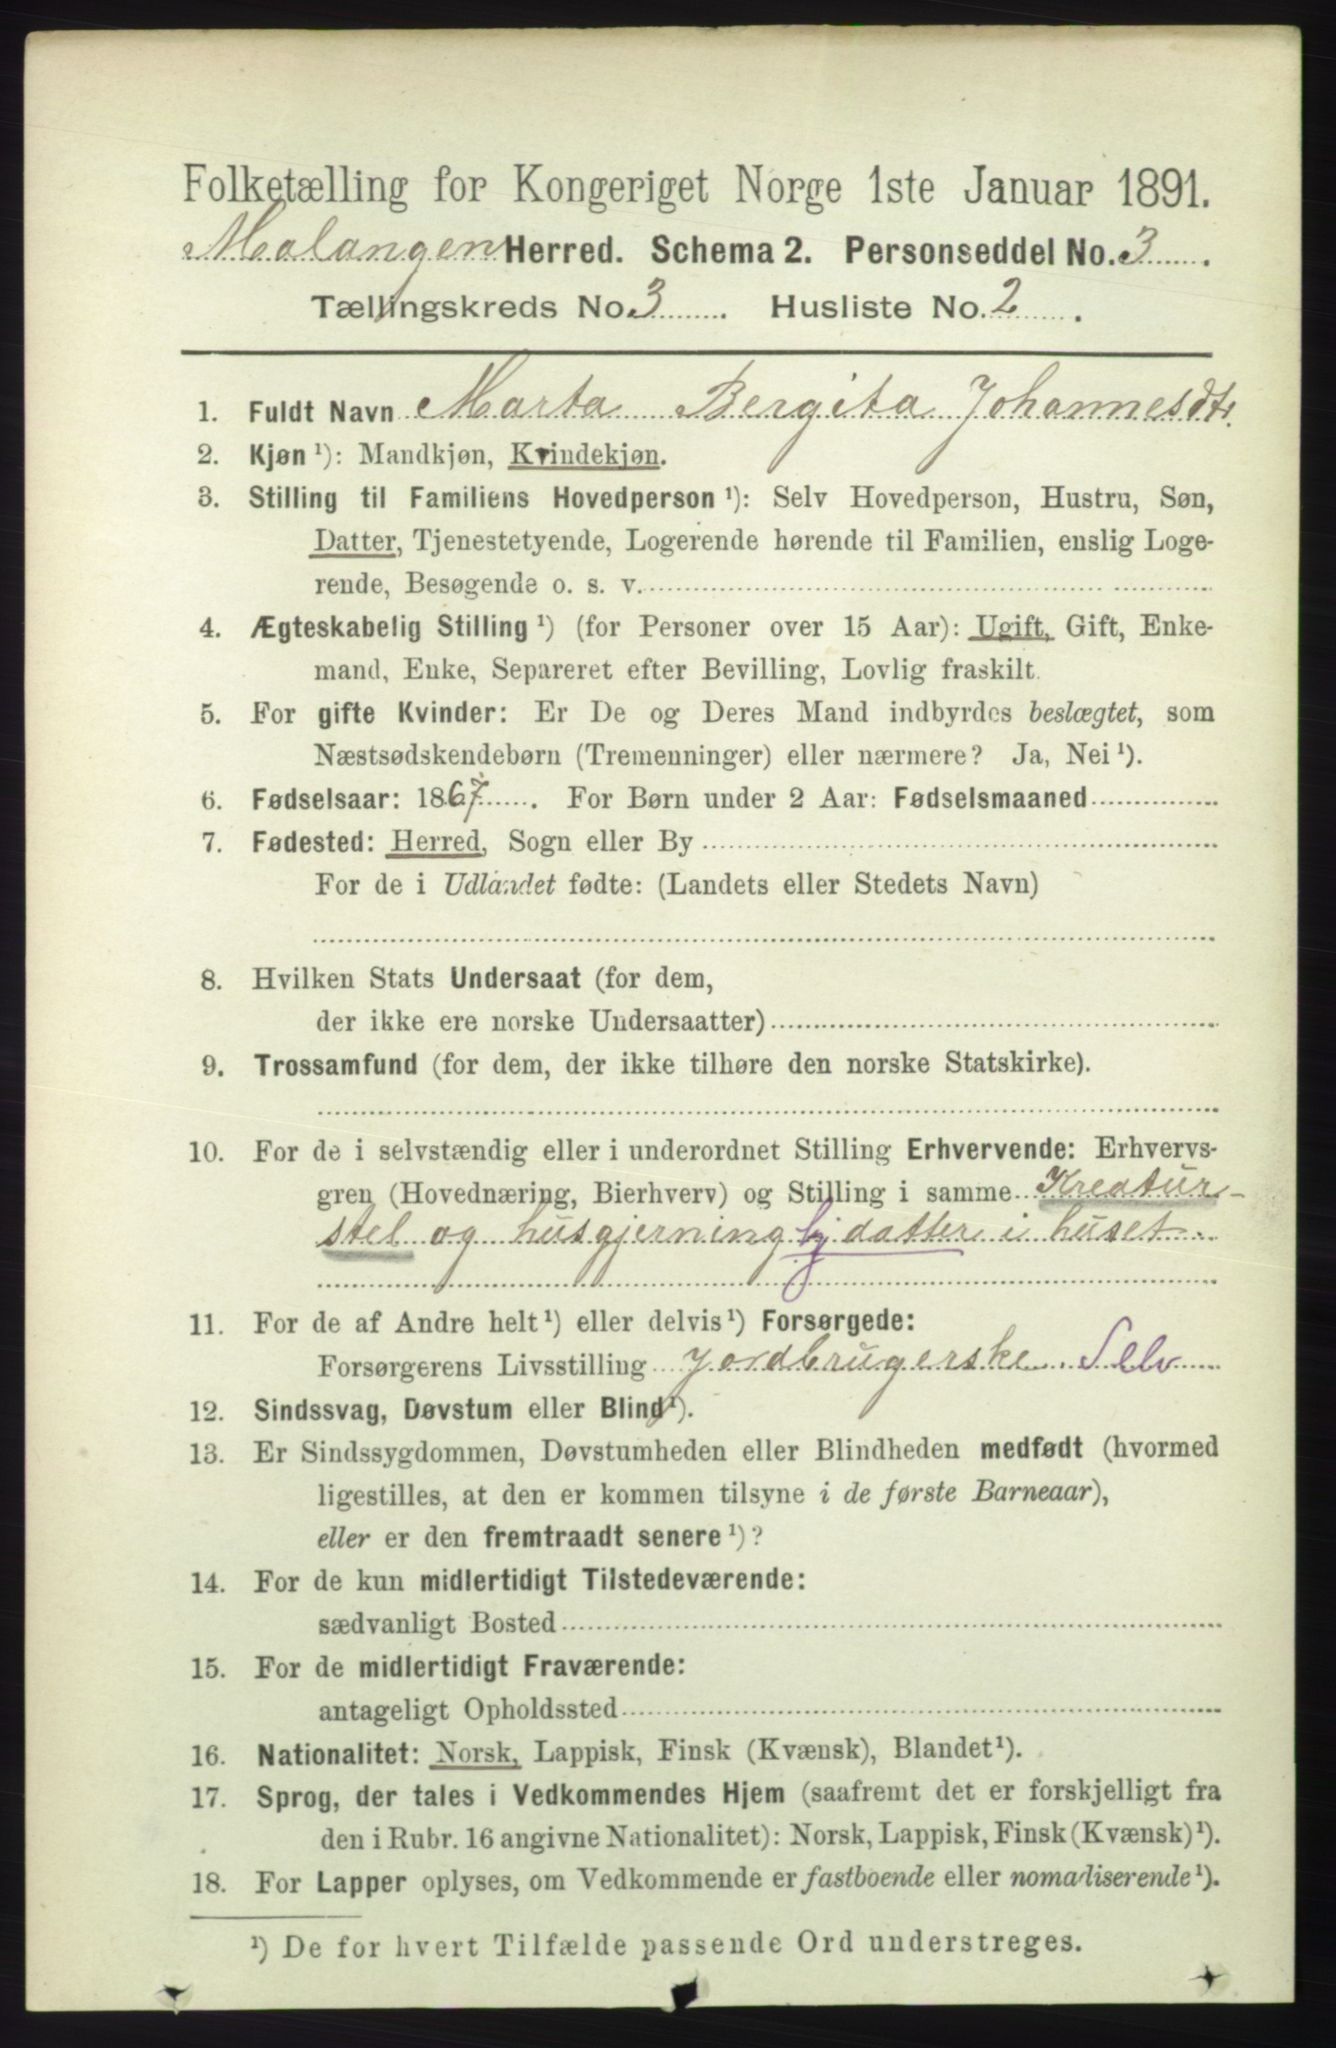 Folketælling for Kongeriget Norge 1ste Januar 1891.
Malangen Herred. Schema 2. Personseddel No. 3
Tællingskreds No. 3. Husliste No. 2.
1. Fuldt Navn Marta Bergita Johannesdtr.
2. Kjøn ¹): Mandkjøn, Kvindekjøn.
3. Stilling til Familiens Hovedperson ¹): Selv Hovedperson, Hustru, Søn,
Datter, Tjenestetyende, Logerende hørende til Familien, enslig Loge-
rende, Besøgende o. s. v.
4. Ægteskabelig Stilling ¹) (for Personer over 15 Aar): Ugift, Gift, Enke-
mand, Enke, Separeret efter Bevilling, Lovlig fraskilt.
5. For gifte Kvinder: Er De og Deres Mand indbyrdes beslægtet, som
Næstsødskendebørn (Tremenninger) eller nærmere? Ja, Nei ¹).
6. Fødselsaar: 1867. For Børn under 2 Aar: Fødselsmaaned
7. Fødested: Herred, Sogn eller By
For de i Udlandet fødte: (Landets eller Stedets Navn)
8. Hvilken Stats Undersaat (for dem,
der ikke ere norske Undersaatter)
9. Trossamfund (for dem, der ikke tilhøre den norske Statskirke).
10. For de i selvstændig eller i underordnet Stilling Erhvervende: Erhvervs-
gren (Hovednæring, Bierhverv) og Stilling i samme Kreatur-
stel og husgjerning hj datter i huset.
11. For de af Andre helt ¹) eller delvis ¹) Forsørgede:
Forsørgerens Livsstilling Jordbrugerske. Selv
12. Sindssvag, Døvstum eller Blind ¹).
13. Er Sindssygdommen, Døvstumheden eller Blindheden medfødt (hvormed
ligestilles, at den er kommen tilsyne i de første Barneaar),
eller er den fremtraadt senere ¹)?
14. For de kun midlertidigt Tilstedeværende:
sædvanligt Bosted
15. For de midlertidigt Fraværende:
antageligt Opholdssted
16. Nationalitet: Norsk, Lappisk, Finsk (Kvænsk), Blandet ¹).
17. Sprog, der tales i Vedkommendes Hjem (saafremt det er forskjelligt fra
den i Rubr. 16 angivne Nationalitet): Norsk, Lappisk, Finsk (Kvænsk) ¹).
18. For Lapper oplyses, om Vedkommende er fastboende eller nomadiserende ¹).
¹) De for hvert Tilfælde passende Ord understreges.